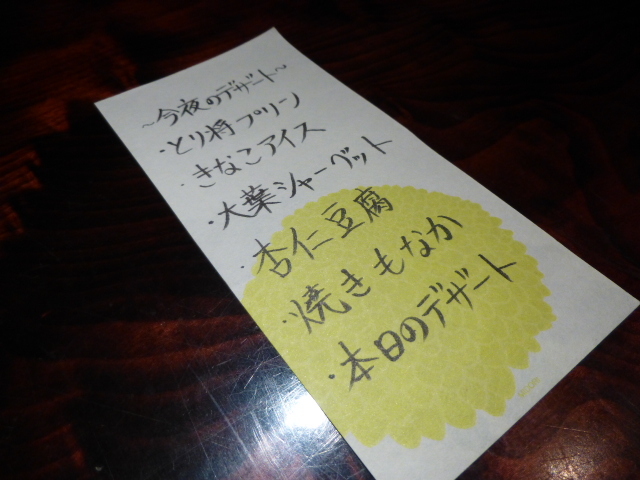 ~今夜のデザート~
・とり将プリーノ
・きなこアイス
・大葉シャーベット
・杏仁豆腐
・焼きもなか
・本日のデザート